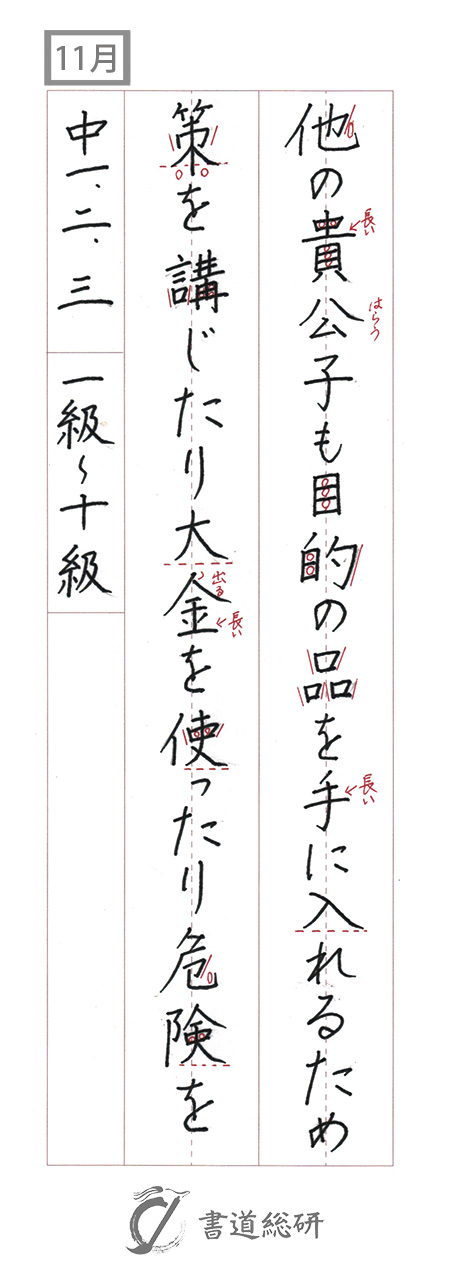 11月
他の貴公子も目的の品を手に入れるため
長い
はらう
長い
策を講じたり大金を使ったり危険を
出る
長い
中一、二、三
一級〜十級
書道総研